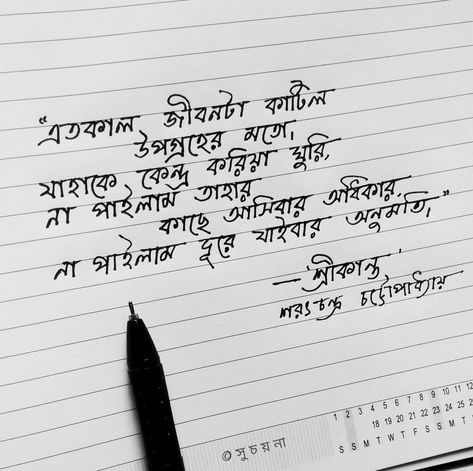 "এতকাল জীবনটা কাটিল
উপগ্রহের মতো।
যাহাকে কেন্দ্র করিয়া ঘুরি,
না পাইলাম তাহার
কাছে আসিবার অধিকার,
না পাইলাম দূরে যাইবার অনুমতি।"
— 'শ্রীকান্ত'
শরৎচন্দ্র চট্টোপাধ্যায়
©সুচয়না
1 2 3 4 5 6 7 8 9 10 11 12
18 19 20 21 22 23 24 25
S S M T W T F S S M T